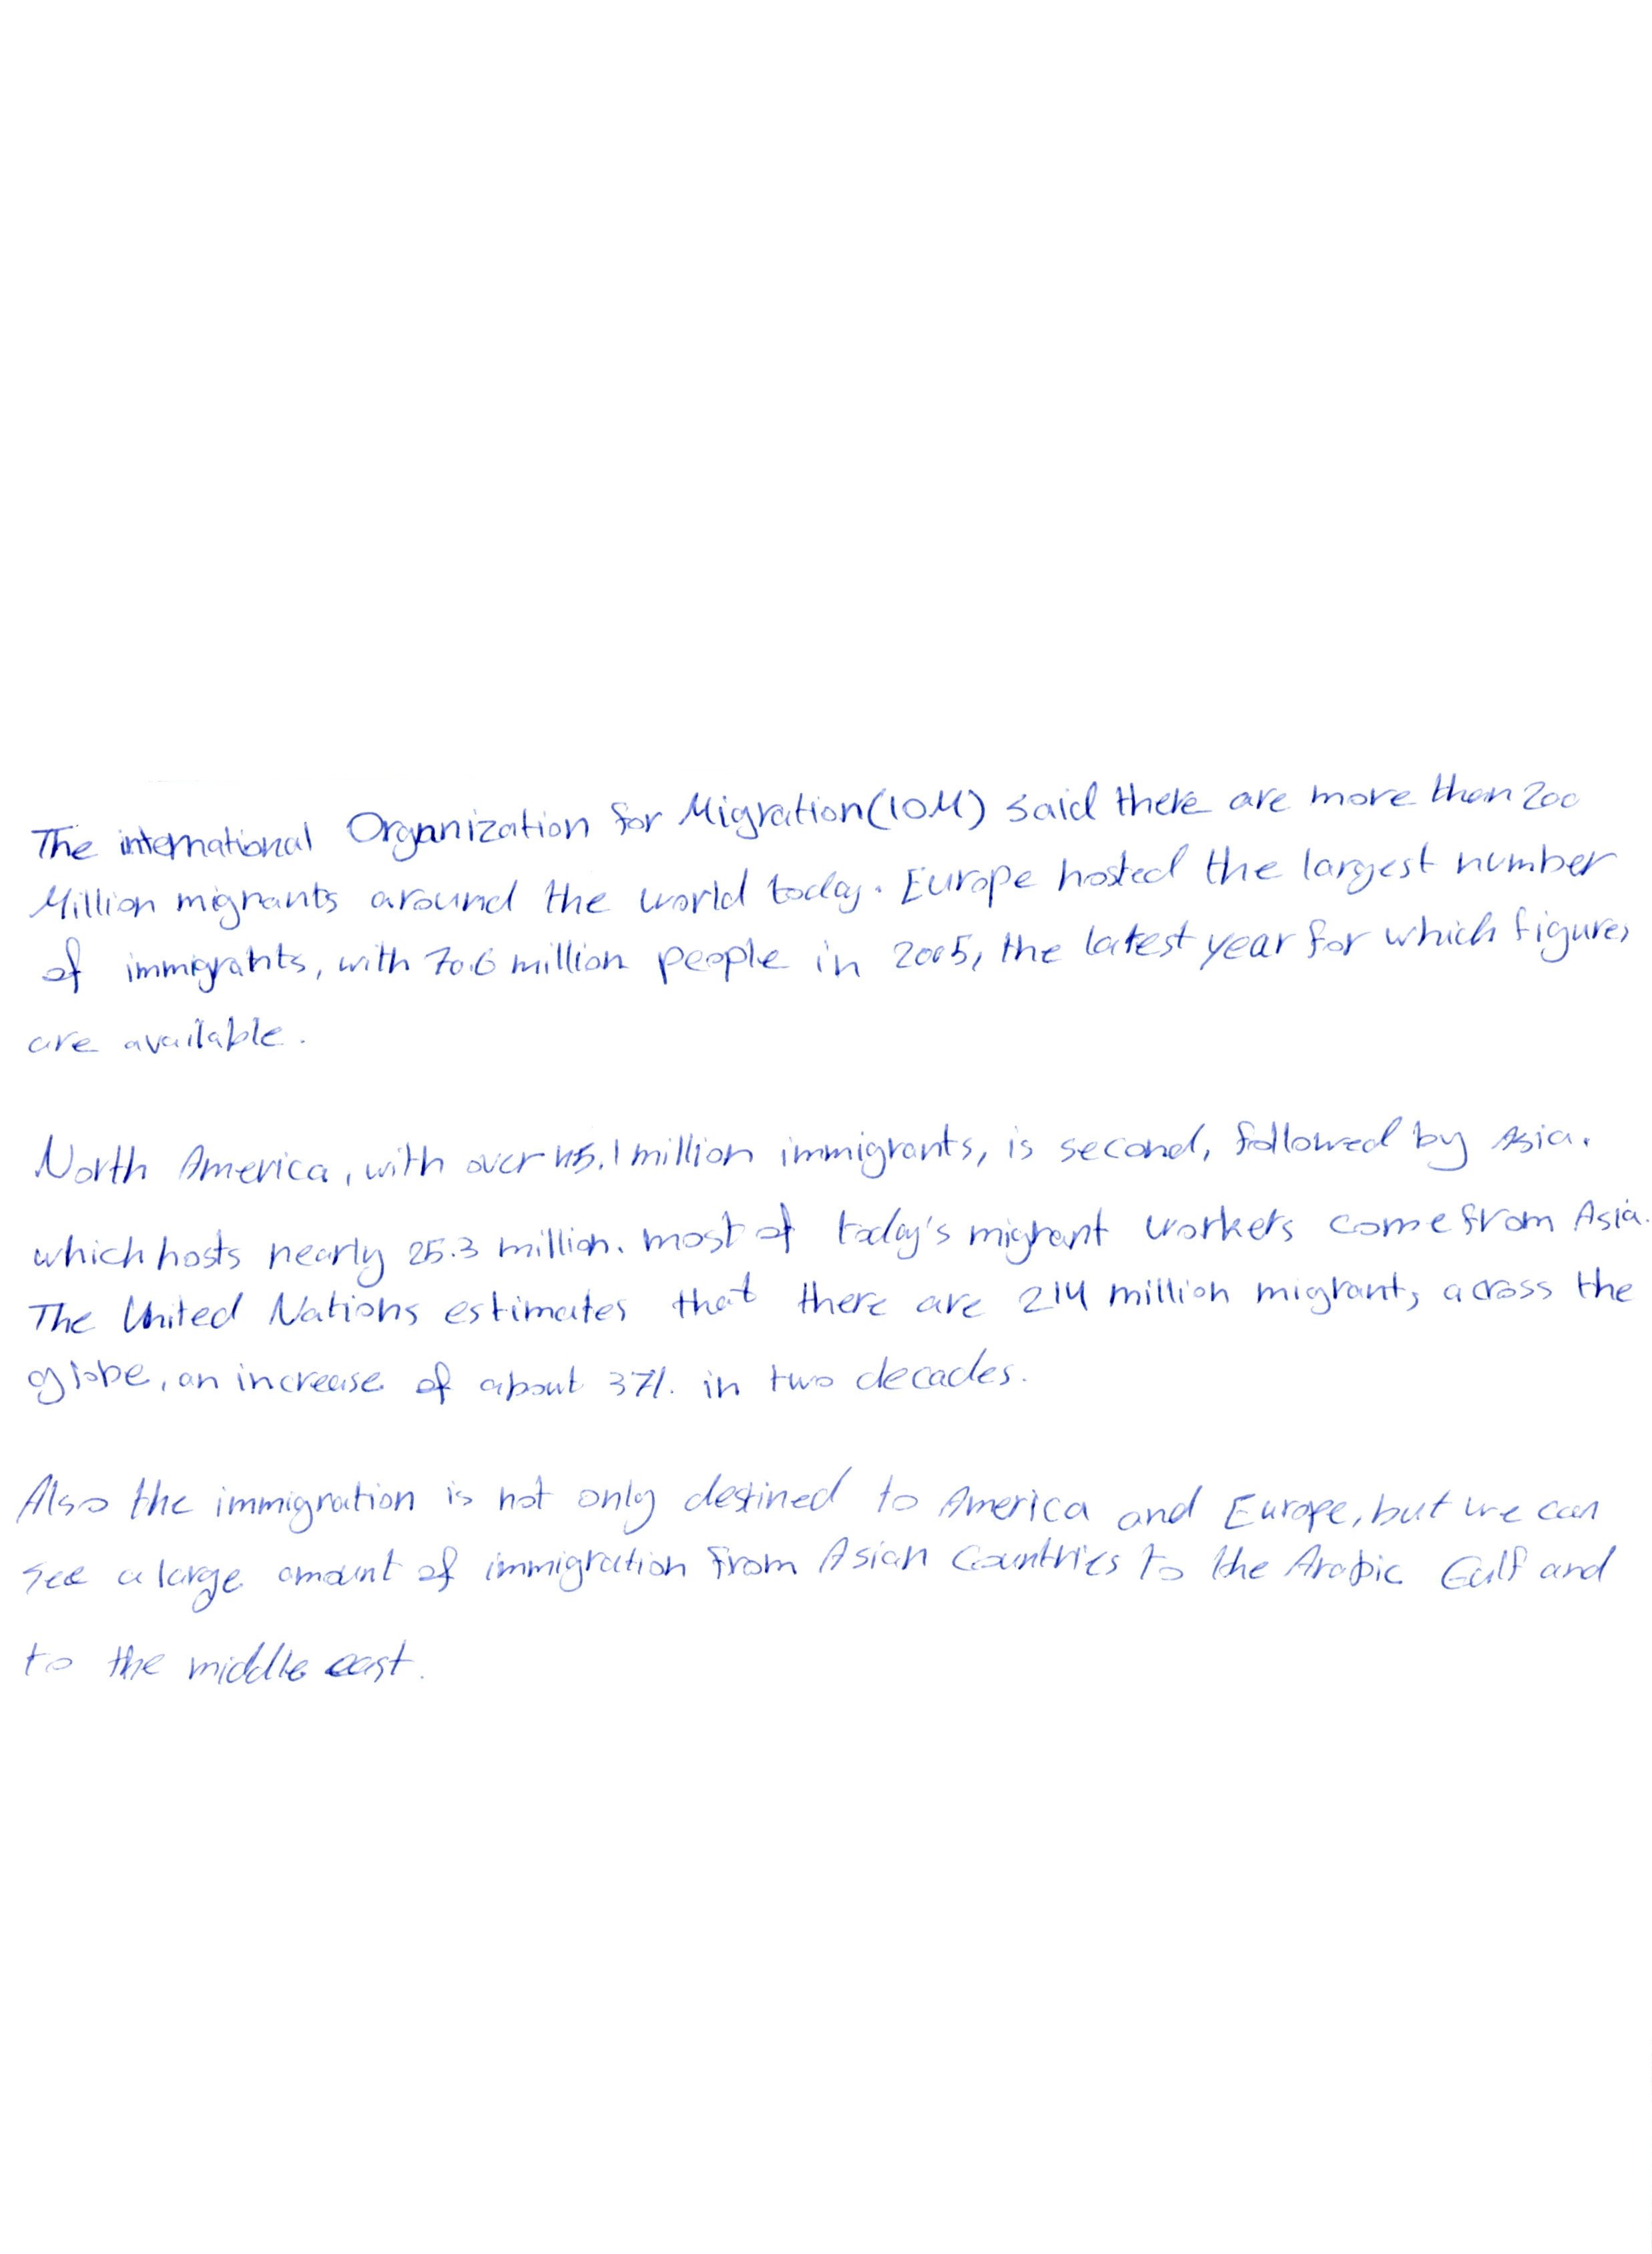 The international Organization for Migration (IOM) said there are more than 200
Million migrants around the world today. Europe hosted the largest number
of immigrants, with 70.6 million people in 2005, the latest year for which figures
are available.
North America, with over 45.1 million immigrants, is second, followed by Asia.
which hosts nearly 25.3 million. most of today's migrant workers come from Asia.
The United Nations estimates that there are 214 million migrants across the
globe, an increase of about 37%. in two decades.
Also the immigration is not only destined to America and Europe, but we can
see a large amount of immigration from Asian Countries to the Arabic Gulf and
to the middle east.